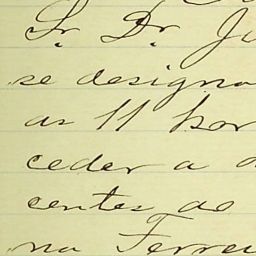 Sr. Dr. Ju
se designa
as 11 hor
ceder a
centes ao
na Ferrei